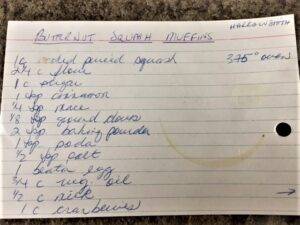 HARROWSMITH
BUTTERNUT SQUASH MUFFINS
1 c cooked pureed squash 375° oven
2 1/4 c flour
1 c sugar
1 tsp cinnamon
1/4 tsp mace
1/8 tsp ground cloves
2 tsp baking powder
1 tsp soda
1/2 tsp salt
1 beaten egg
3/4 c veg. oil
1/2 c milk →
1 c cranberries